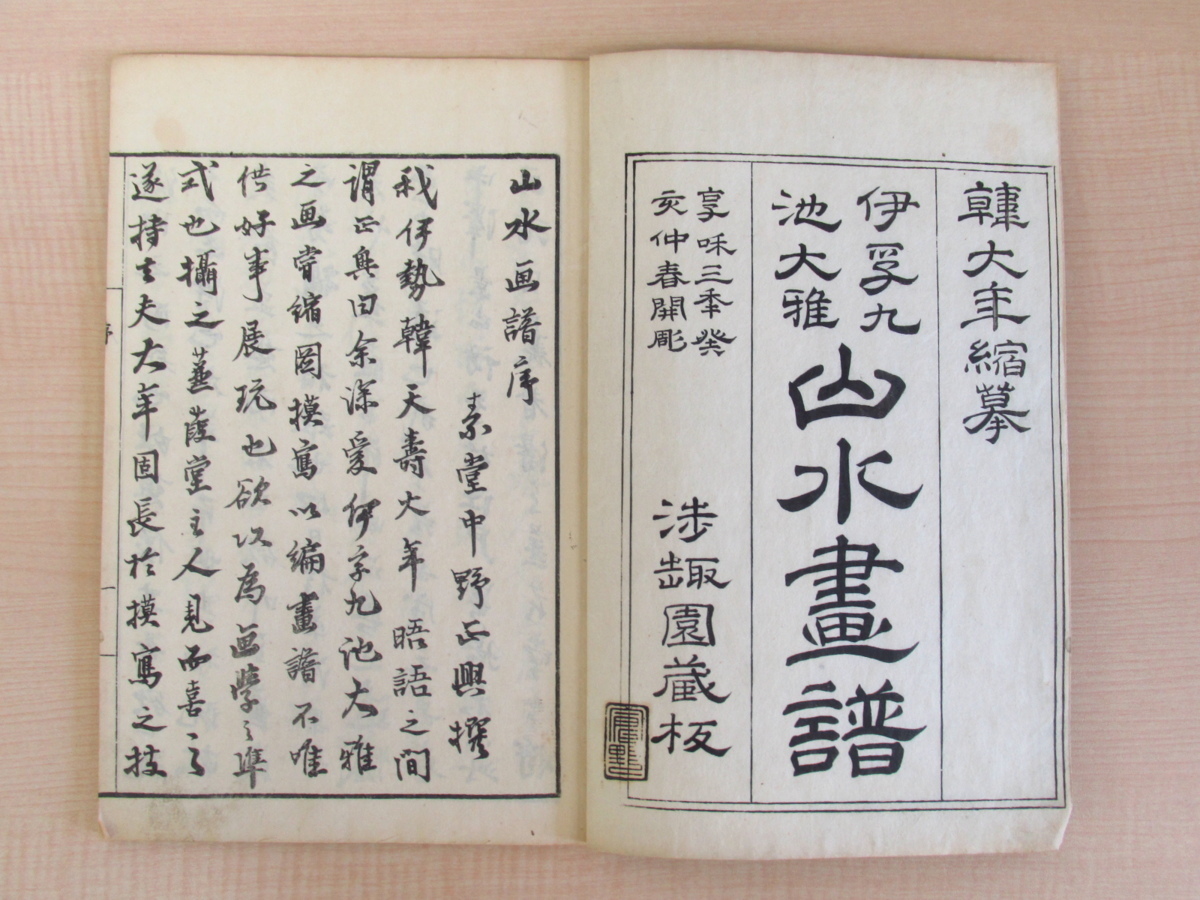 韓大年縮摹
伊孚九
池大雅
山水畫譜
享和三年癸
亥仲春開彫
涉趣園蔵板
山水画譜序
素堂中野正興撰
我伊勢韓天壽大年晤語之間
謂正興曰余深愛伊孚九池大雅
之画嘗縮圖摸寫以編畫譜不唯
供好事展玩也欲以為画學之準
式也攝之蒹葭堂主人見而喜之
遂持去夫大年固長於摸寫之技
序